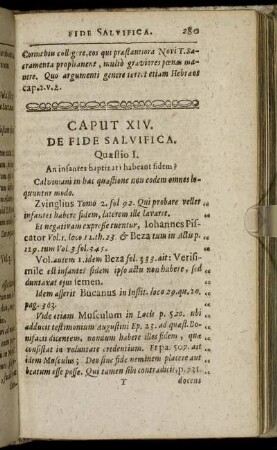 FIDE SALVIFICA. 280
Corinthiis colligere, eos qui præstantiora Novi T. Sa-
cramenta prophanent, multò graviores pœnas ma-
nere. Quo argumenti genere
cap. 2. v. 2.
CAPUT XIV.
DE FIDE SALVIFICA.
Quæstio I.
An infantes baptizati habeant fidem?
Calviniani in hac quæstione non eodem omnes lo-
quuntur modo.
Zvinglius Tomo 2. fol 92. Qui probare vellet
infantes habere fidem, laterem ille lavaret.
Et negativam expresse tuentur, Iohannes Pis-
cator Vol. 1. loco 12. th. 23. & Beza tum in Actis p.
129. tum Vol 3. fol. 345.
Vol. autem 1. idem Beza fol. 333. ait: Verisi-
mile est infantes fidem ipso actu non habere, sed
duntaxat ejus semen.
Idem asserit Bucanus in Instit. loco 29. qu. 20.
pag. 363.
Vide etiam Musculum in Locis p. 520. ubi
adducit testimonium Augustini Ep. 23. ad quæst. Bo-
nifacii dicentem, nondum habere illos fidem, quæ
consistat in voluntate credentium. Et pa. 507. ait
idem Musculus; Deo sine fide neminem placere aut
beatum esse posse. Qui tamen sibi contradicit, p. 731.
T docens